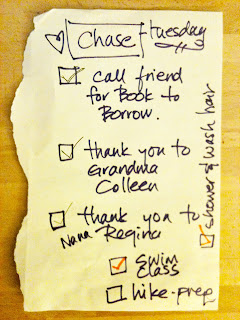 Chase Tuesday
call friend
for Book to
Borrow.
thank you to
Grandma
Colleen
thank you to
Nana Regina
shower & wash hair
swim
class
hike-prep